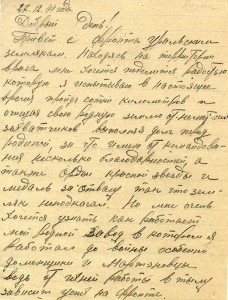 22.12.44 года
Добрый день!
Привет с фронта уральским
землякам. Находясь на территории
врага мне хочется поделится радостью
которую я испытываю в настоящее
время пройдя сотни километров и
очищая свою родную землю от немецких
захватчиков выполняя долг перед
родиной, за что имею от командова-
ния несколько благодарностей, а
также орден красной звезды и
медаль за отвагу так что зем-
ляк не подкачал. Но мне очень
хочется узнать как работает
мой родной завод в котором я
работал до войны особенно
доменщики и Мартеновцы
ведь от вашей работы в тылу
зависит успех на фронте.